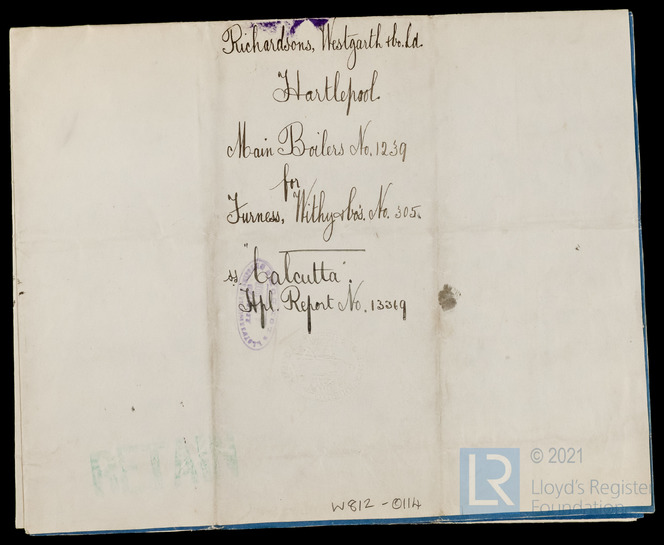 Richardsons, Westgarth & Co. Ld.
Hartlepool
Main Boilers No. 1239
for
Furness, Withy & Co's. No. 305.
ss "Calcutta".
Hpl. Report No. 13369
W812-0114
LR
© 2021
Lloyd's Register
Foundation